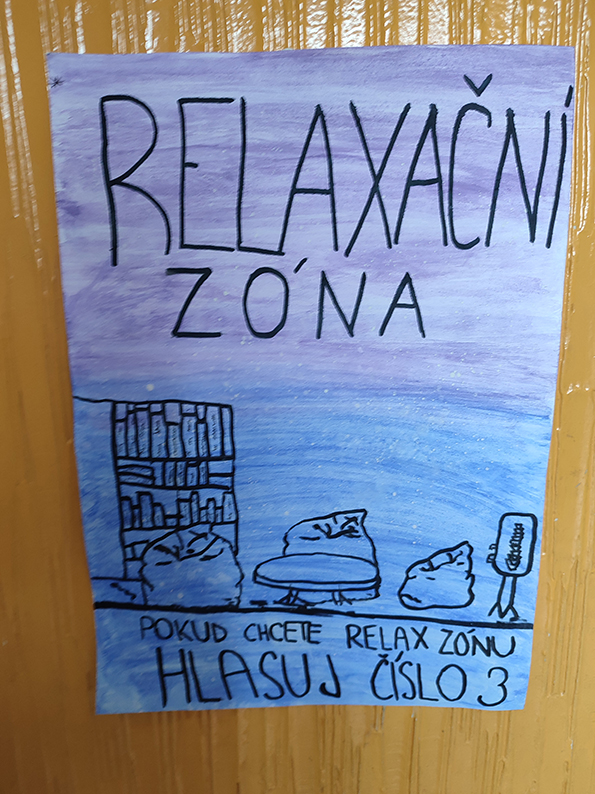 RELAXAČNÍ
ZÓNA
POKUD CHCETE RELAX ZÓNU
HLASUJ ČÍSLO 3